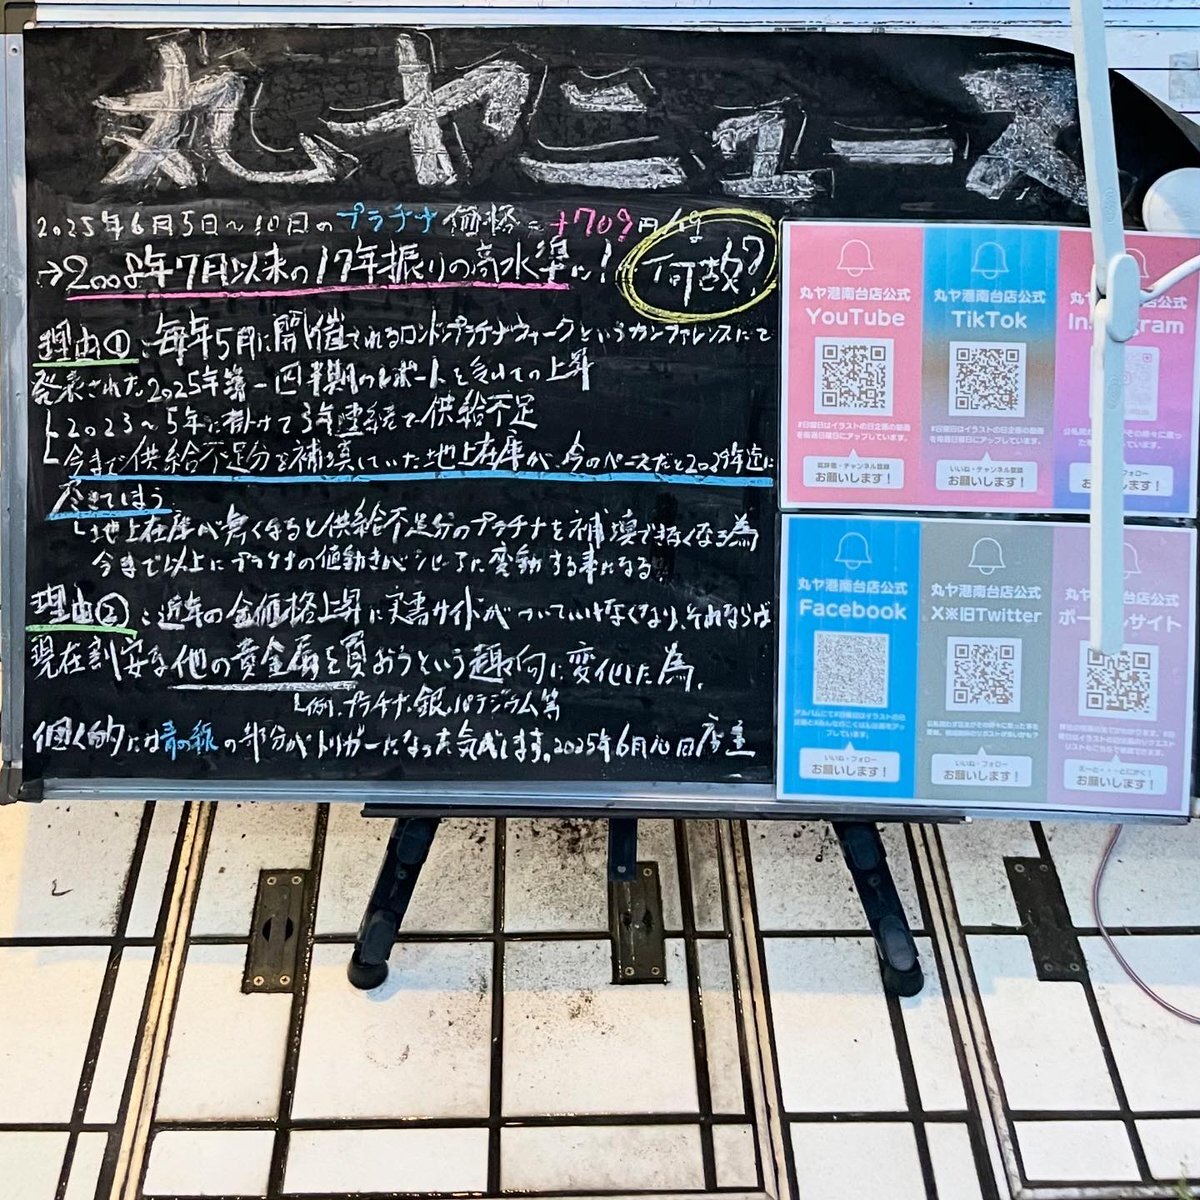 丸ヤニュース
2025年6月5日~10日のプラチナ価格は+709円/g
→2008年7月以来の17年振りの高水準に!
何故?
理由①:毎年5月に開催されるロンドンプラチナウィークというカンファレンスにて
発表された2025年第一四半期のレポートを受けての上昇
└2023~5年に掛けて3年連続で供給不足
└今まで供給不足分を補填していた地上在庫が、今のペースだと2029年迄に
尽きてしまう
└地上在庫が無くなると供給不足分のプラチナを補填できなくなる為
今まで以上にプラチナの値動きがシビアに変動する事になる
理由②:近年の金価格上昇に実書サイドがついていけなくなり、それならば
現在割安な他の貴金属を買おうという趣向に変化した為。
└例.プラチナ、銀、パラジウム等
個人的には青の線の部分がトリガーになった気がします。2025年6月10日店主
丸ヤ港南台店公式
YouTube
#日曜日はイラストの日企画の動画を毎週日曜日にアップしています。
高評価・チャンネル登録
お願いします!
丸ヤ港南台店公式
TikTok
#日曜日はイラストの日企画の動画を毎週日曜日にアップしています。
いいね・チャンネル登録
お願いします!
丸ヤ
公式
フォロー
お願いします!
丸ヤ港南台店公式
Facebook
いいね・フォロー
お願いします!
丸ヤ港南台店公式
X※旧Twitter
いいね・フォロー
お願いします!
丸ヤ港南台店公式
サイト
お願いします!